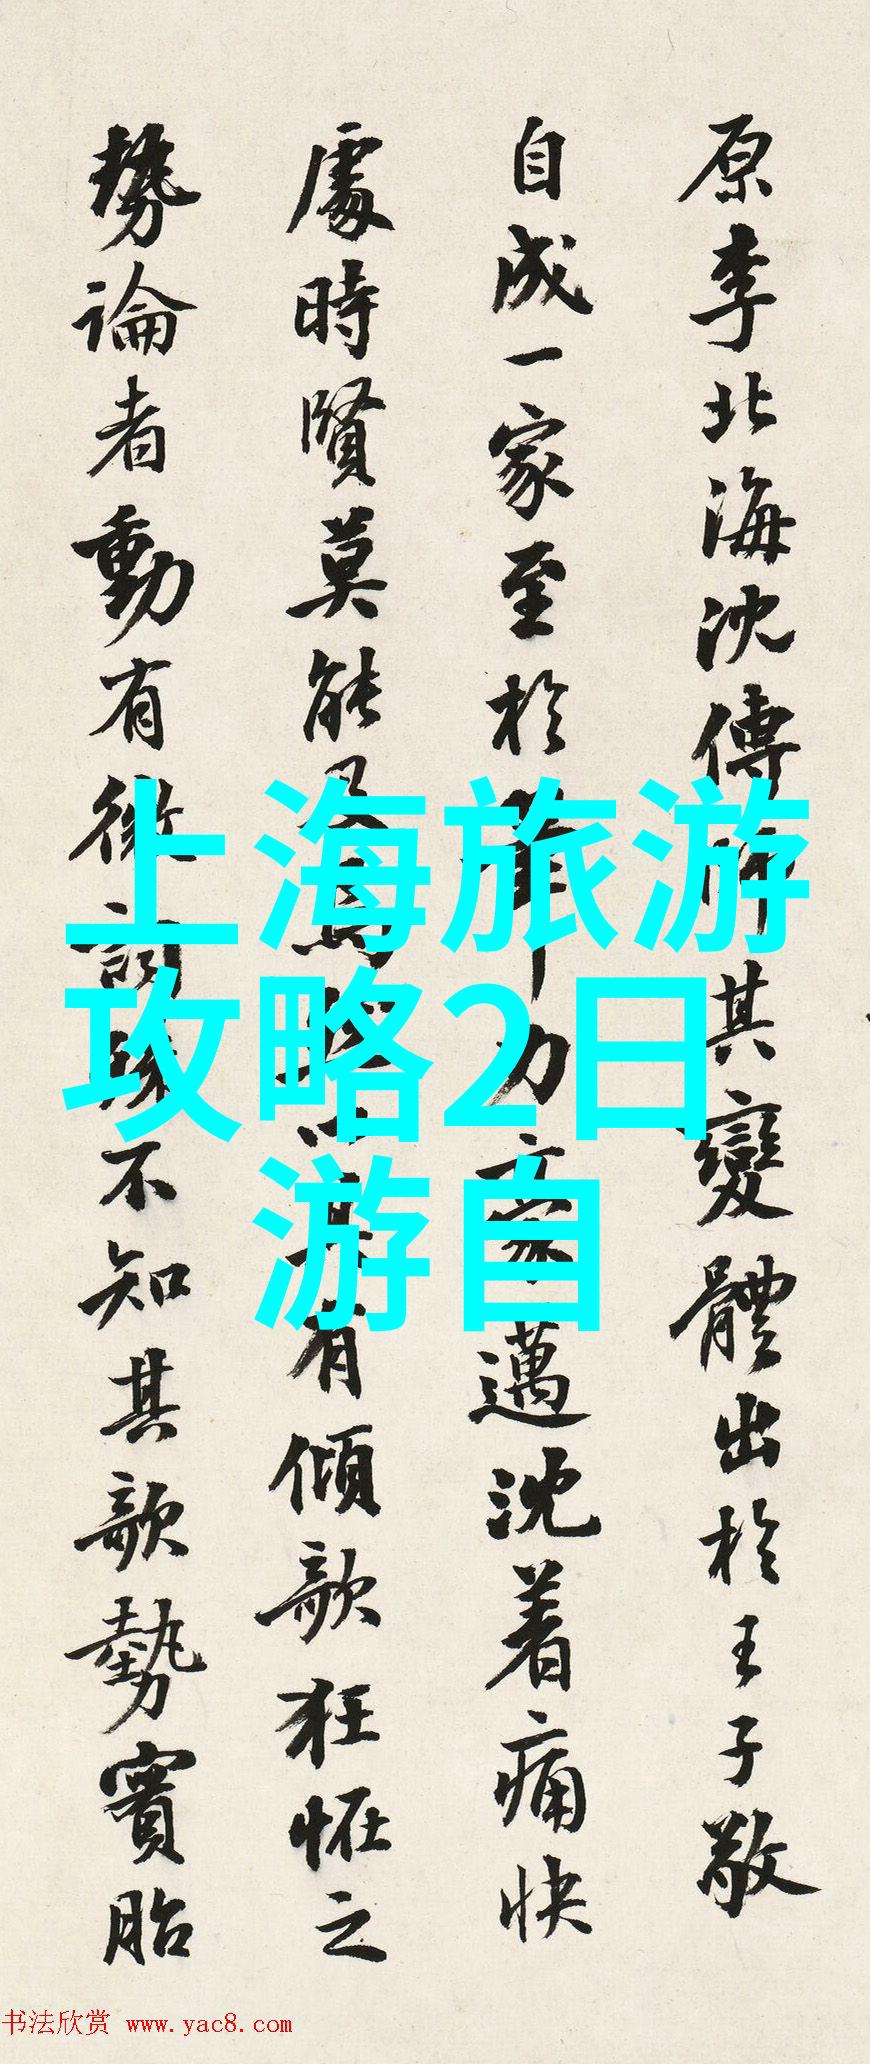 上海旅游
攻略2日
游自
原李北海沈傳師其變體出於王子敬
自成一家至於力豪邁沈着痛快
處時賢莫能及其有傾欹狂怪之
勢論者動有微詞殊不知其欹勢實胎
书法欣赏 www.yac8.com